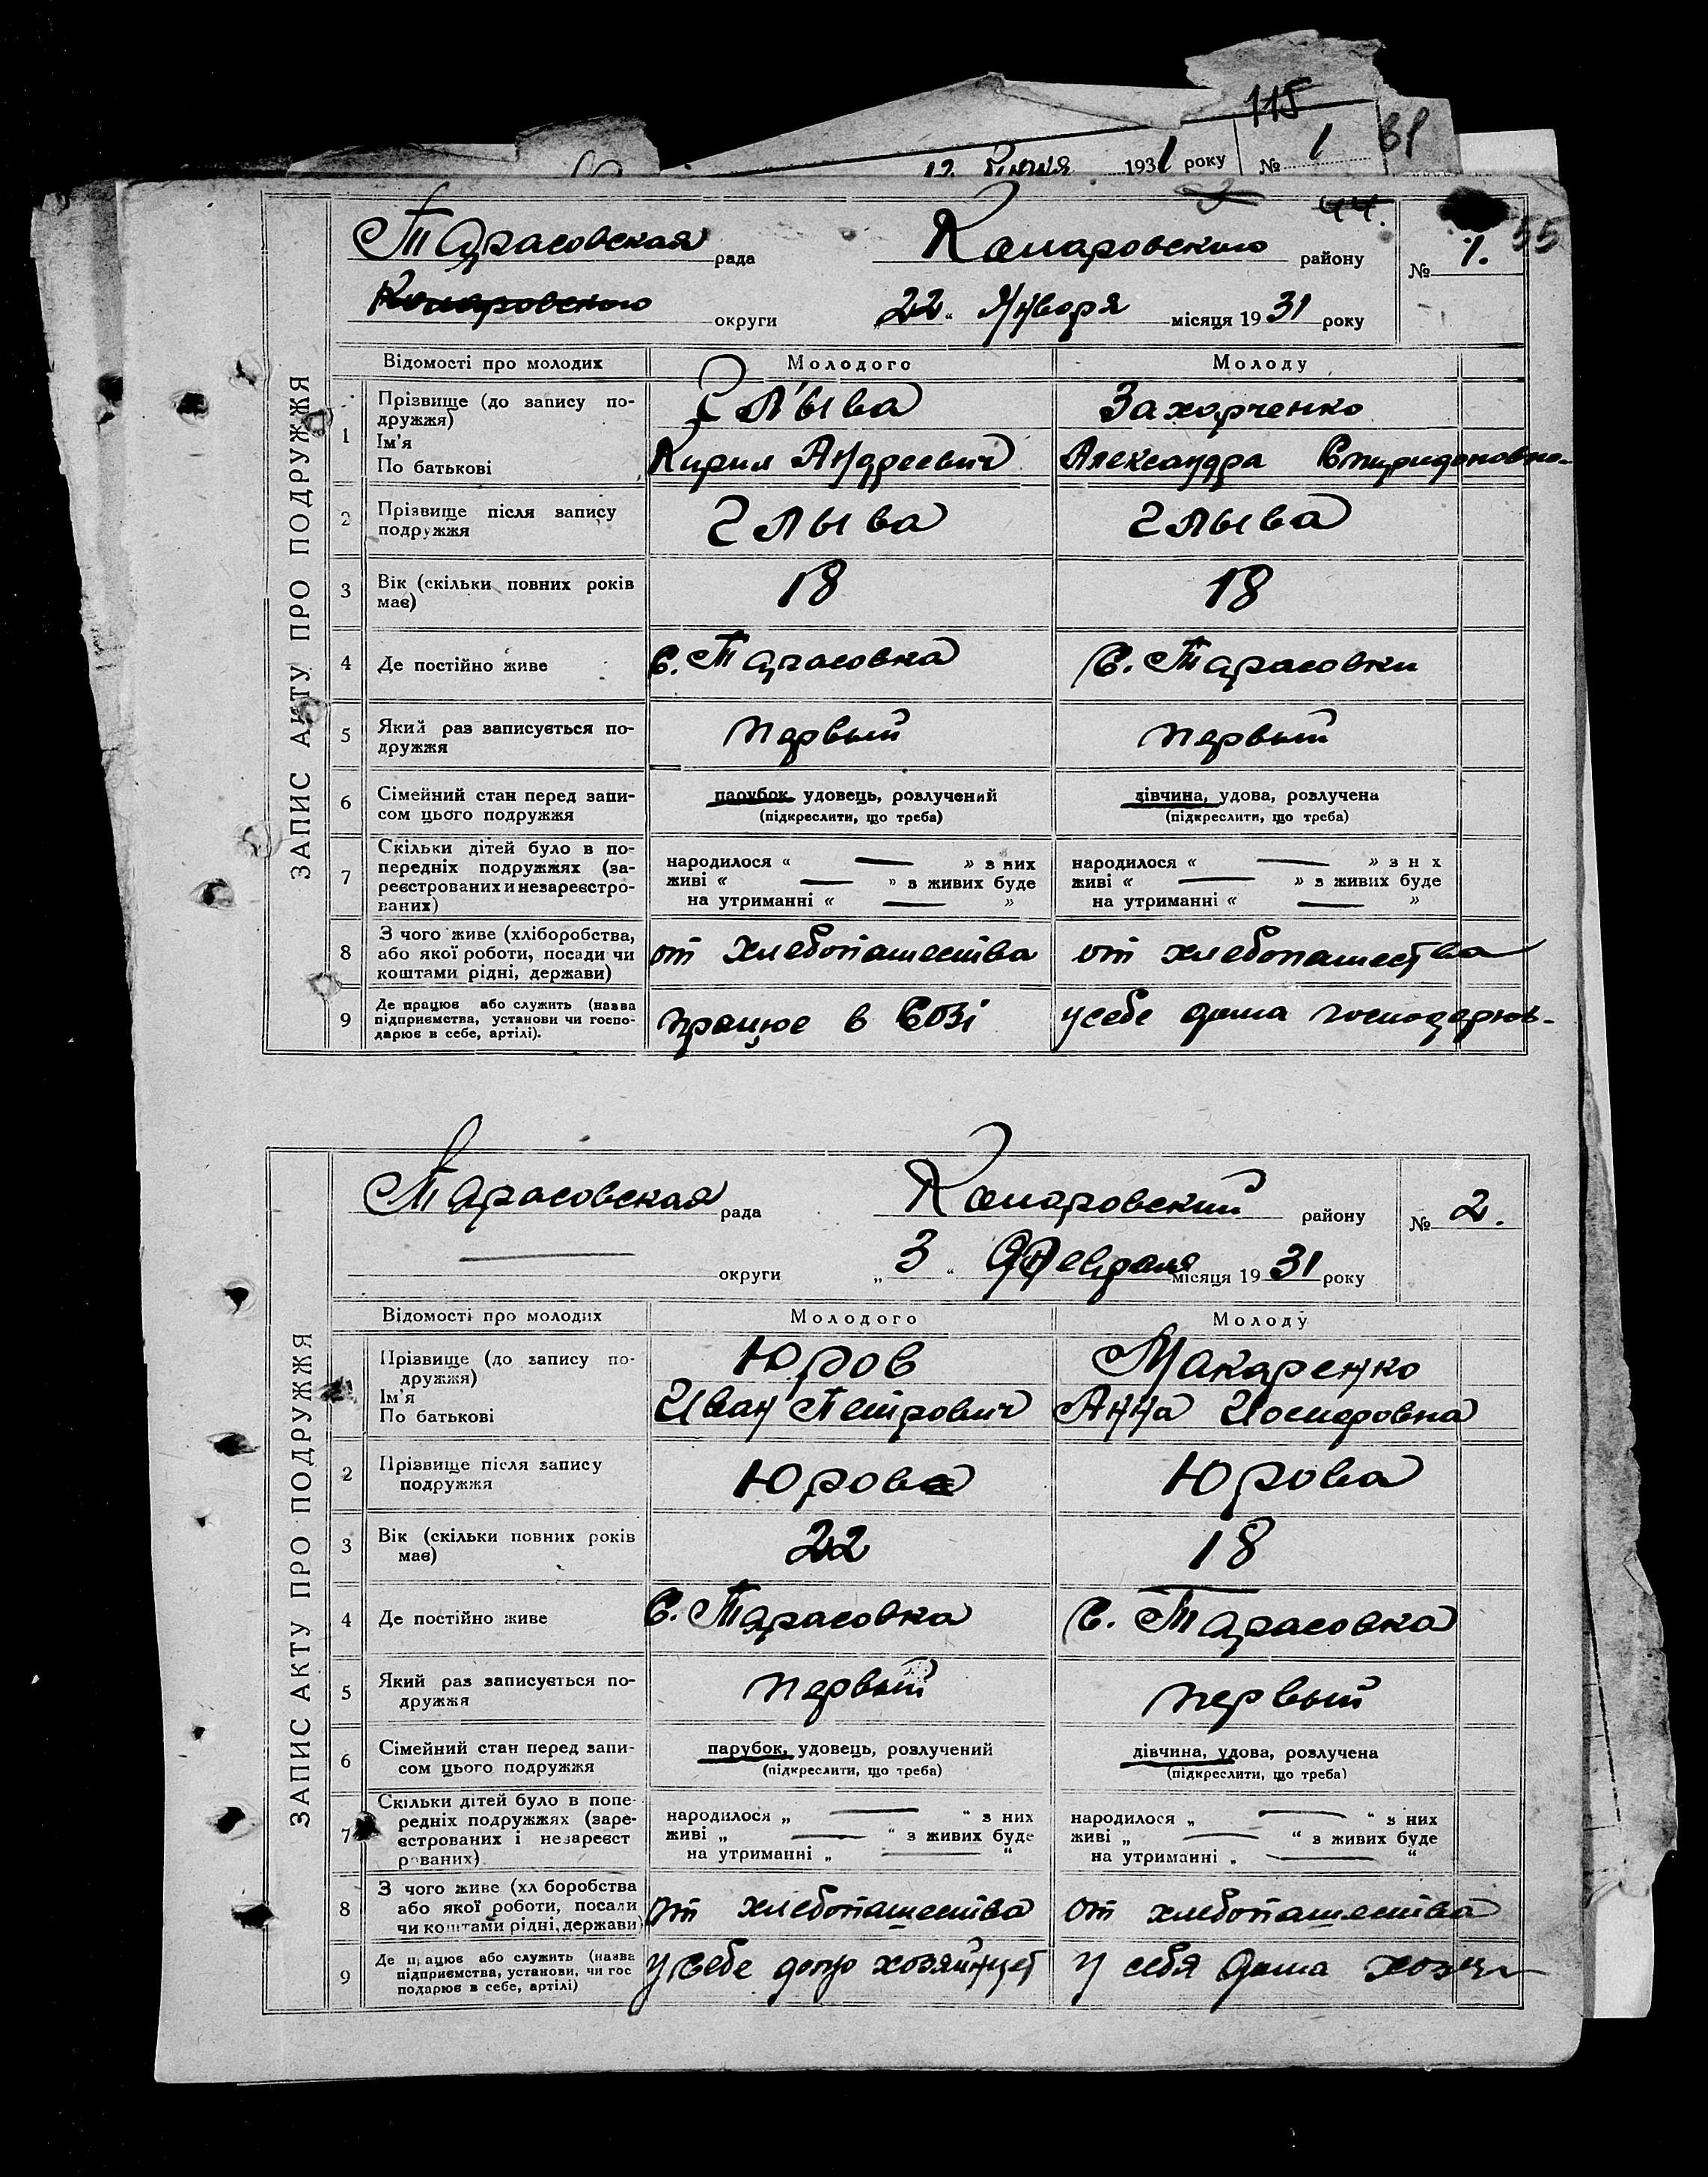 115
12 Січня 1931 року № 1
44.
55
ЗАПИС АКТУ ПРО ПОДРУЖЖЯ
Тарасовская рада Комаровского району № 1.
Комаровского округи „22“ Января місяця 1931 року
Відомості про молодих Молодого Молоду
1 Прізвище (до запису по-
дружжя)
Ім'я
По батькові
Глыва Захорченко
Кирил Андреевич Александра Спиридоновна
2 Прізвище після запису
подружжя
Глыва Глыва
3 Вік (скільки повних років
має)
18 18
4 Де постійно живе С. Тарасовка С. Тарасовки
5 Який раз записується по-
дружжя
первый первый
6 Сімейний стан перед запи-
сом цього подружжя
парубок, удовець, розлучений дівчина, удова, розлучена
(підкреслити, що треба) (підкреслити, що треба)
7 Скільки дітей було в по-
передніх подружжях (за-
реєстрованих и незареєстро-
ваних)
народилося « — » з них народилося « — » з н х
живі « — » з живих буде живі « — » з живих буде
на утриманні « — » на утриманні « — »
8 З чого живе (хліборобства,
або якої роботи, посади чи
коштами рідні, держави)
от хлебопашества от хлебопашества
9 Де працює або служить (назва
підприємства, установи чи госпо-
дарює в себе, артілі).
працює в СОЗі у себе дома господарює
ЗАПИС АКТУ ПРО ПОДРУЖЖЯ
Тарасовская рада Комаровский району № 2.
— округи „3“ Февраля місяця 1931 року
Відомості про молодих Молодого Молоду
Прізвище (до запису по-
дружжя)
Ім'я
По батькові
Юров Макаренко
Иван Петрович Анна Иосифовна
2 Прізвище після запису
подружжя
Юров Юрова
3 Вік (скільки повних років
має)
22 18
4 Де постійно живе С. Тарасовка С. Тарасовка
5 Який раз записується по-
дружжя
первый первый
6 Сімейний стан перед запи-
сом цього подружжя
парубок, удовець, розлучений дівчина, удова, розлучена
(підкреслити, що треба) (підкреслити, що треба)
7 Скільки дітей було в попе-
редніх подружжях (заре-
єстрованих і незареєст
рованих)
народилося „ — “ з них народилося „ — “ з них
живі „ — “ з живих буде живі „ — “ з живих буде
на утриманні „ — “ на утриманні „ — “
8 З чого живе (хл боробства
або якої роботи, посали
чи коштами рідні, держави)
от хлебопашества от хлебопашества
9 Де працює або служить (назва
підприємства, установи, чи гос
подарює в себе, артілі)
у себе дома хозяйнует у себя дома